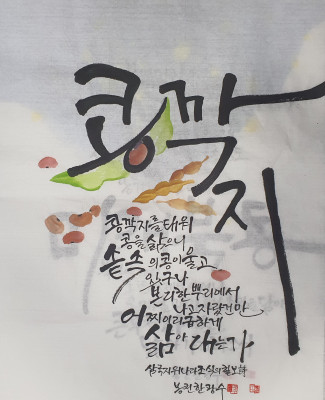 콩깍지
콩깍지를 태워
콩을 삶으니
솥 속의 콩이 울고
있구나
본디 한 뿌리에서
나고 자랐건만
어찌 이리 급하게
삶아 대는가
삼국지 위나라 조식의 칠보시